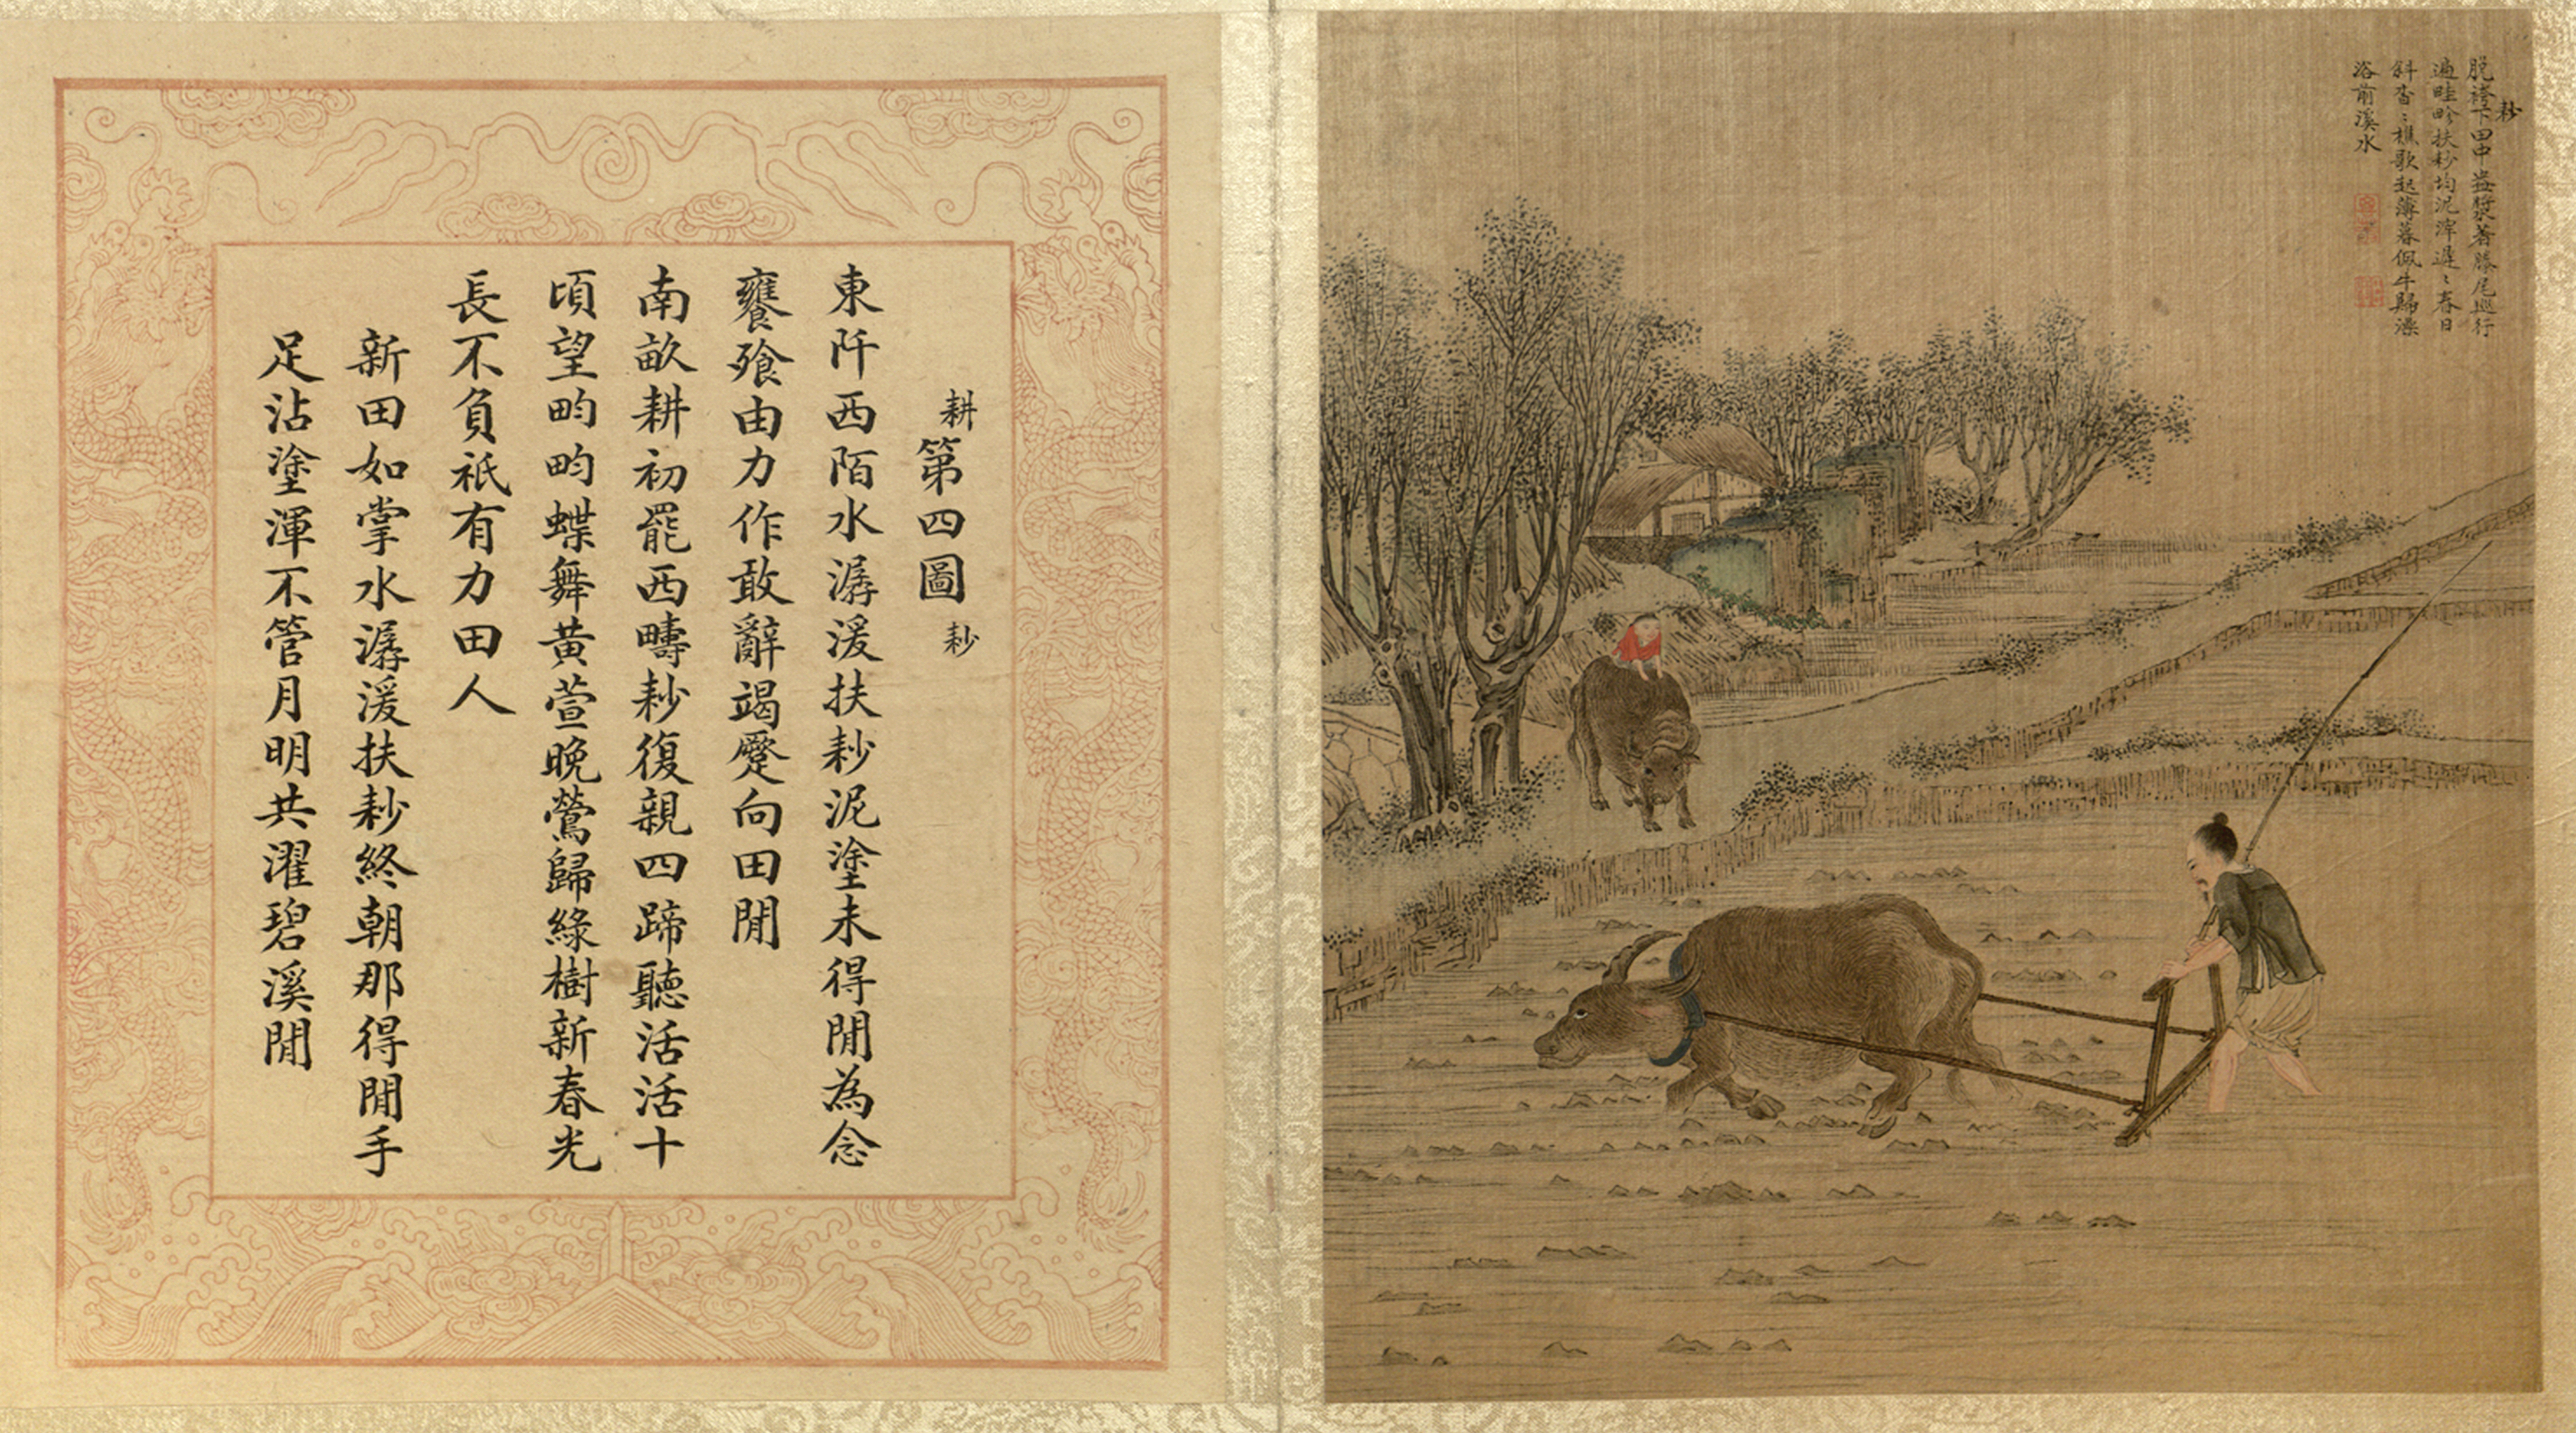 耖
脫袴下田中盎漿著塍尾巡行
遍畦畛扶耖均泥滓遲〻春日
斜杳〻樵歌起薄暮佩牛歸澡
浴前溪水
耕第四圖 耖
東阡西陌水潺湲扶耖泥塗未得閒為念
饔飱由力作敢辭竭蹷向田閒
南畝耕初罷西疇耖復親四蹄聽活活十
頃望畇畇蝶舞黃萱晚鶯歸綠樹新春光
長不負祇有力田人
新田如掌水潺湲扶耖終朝那得閒手
足沾塗渾不管月明共濯碧溪閒